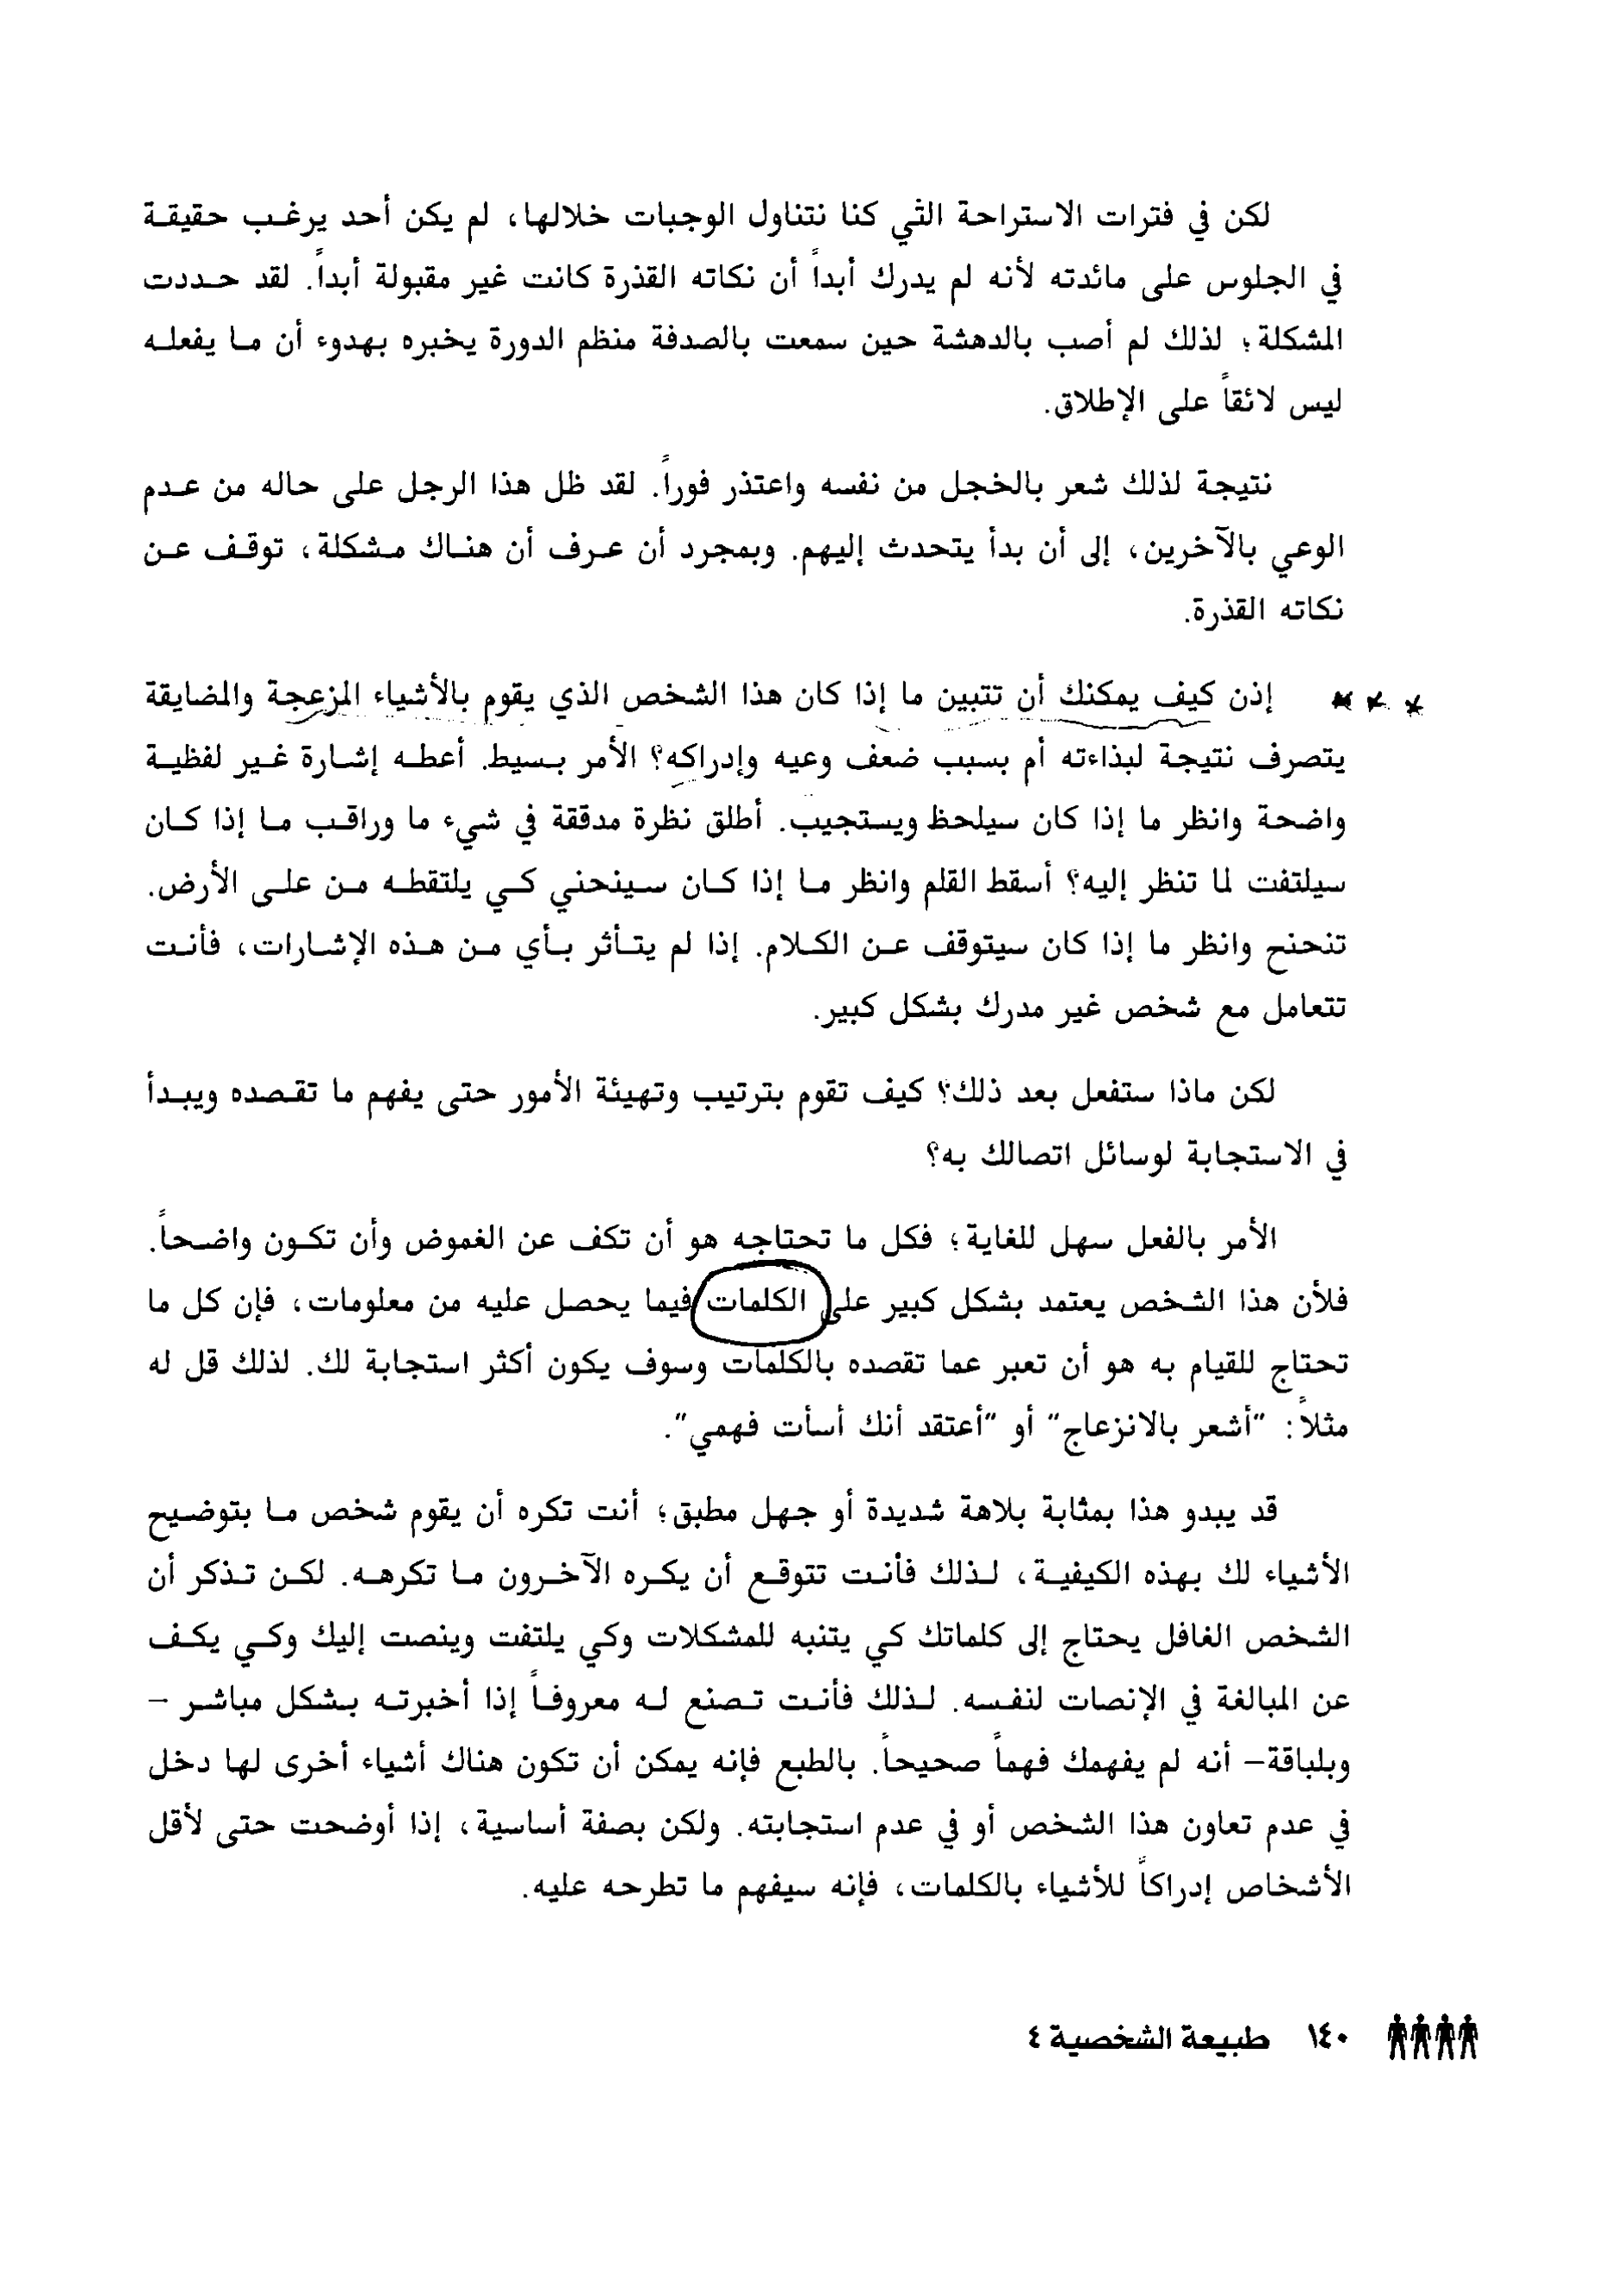 لكن في فترات الاستراحة التي كنا نتناول الوجبات خلالها، لم يكن أحد يرغب حقيقة
في الجلوس على مائدته لأنه لم يدرك أبداً أن نكاته القذرة كانت غير مقبولة أبداً. لقد حددت
المشكلة؛ لذلك لم أصب بالدهشة حين سمعت بالصدفة منظم الدورة يخبره بهدوء أن ما يفعله
ليس لائقاً على الإطلاق.
نتيجة لذلك شعر بالخجل من نفسه واعتذر فوراً. لقد ظل هذا الرجل على حاله من عدم
الوعي بالآخرين، إلى أن بدأ يتحدث إليهم. وبمجرد أن عرف أن هناك مشكلة، توقف عن
نكاته القذرة.
إذن كيف يمكنك أن تتبين ما إذا كان هذا الشخص الذي يقوم بالأشياء المزعجة والمضايقة
يتصرف نتيجة لبذاءته أم بسبب ضعف وعيه وإدراكه؟ الأمر بسيط. أعطه إشارة غير لفظية
واضحة وانظر ما إذا كان سيلحظ ويستجيب. أطلق نظرة مدققة في شيء ما وراقب ما إذا كان
سيلتفت لما تنظر إليه؟ أسقط القلم وانظر ما إذا كان سينحني كي يلتقطه من على الأرض.
تنحنح وانظر ما إذا كان سيتوقف عن الكلام. إذا لم يتأثر بأي من هذه الإشارات، فأنت
تتعامل مع شخص غير مدرك بشكل كبير.
لكن ماذا ستفعل بعد ذلك؟ كيف تقوم بترتيب وتهيئة الأمور حتى يفهم ما تقصده ويبدأ
في الاستجابة لوسائل اتصالك به؟
الأمر بالفعل سهل للغاية؛ فكل ما تحتاجه هو أن تكف عن الغموض وأن تكون واضحاً.
فلأن هذا الشخص يعتمد بشكل كبير على الكلمات فيما يحصل عليه من معلومات، فإن كل ما
تحتاج للقيام به هو أن تعبر عما تقصده بالكلمات وسوف يكون أكثر استجابة لك. لذلك قل له
مثلاً: "أشعر بالانزعاج" أو "أعتقد أنك أسأت فهمي".
قد يبدو هذا بمثابة بلاهة شديدة أو جهل مطبق؛ أنت تكره أن يقوم شخص ما بتوضيح
الأشياء لك بهذه الكيفية، لذلك فأنت تتوقع أن يكره الآخرون ما تكرهه. لكن تذكر أن
الشخص الغافل يحتاج إلى كلماتك كي يتنبه للمشكلات وكي يلتفت وينصت إليك وكي يكف
عن المبالغة في الإنصات لنفسه. لذلك فأنت تصنع له معروفاً إذا أخبرته بشكل مباشر –
وبلباقة– أنه لم يفهمك فهماً صحيحاً. بالطبع فإنه يمكن أن تكون هناك أشياء أخرى لها دخل
في عدم تعاون هذا الشخص أو في عدم استجابته. ولكن بصفة أساسية، إذا أوضحت حتى لأقل
الأشخاص إدراكاً للأشياء بالكلمات، فإنه سيفهم ما تطرحه عليه.
١٤٠ طبيعة الشخصية ٤